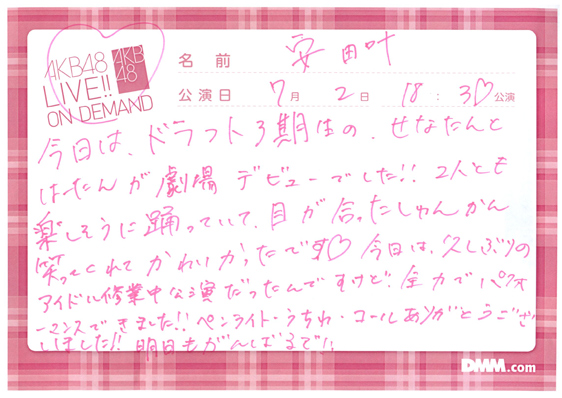 AKB48
LIVE!!
ON DEMAND
AKB
48
名前 安田叶
公演日 7月 2日 18:30公演
今日は、ドラフト3期生の、せなたんと
はーたんが劇場デビューでした!! 2人とも
楽しそうに踊っていて、目が合ったしゅんかん
笑ってくれてかわいかったです♡ 今日は、久しぶりの
アイドル修業中公演だったんですけど! 全力でパフォ
ーマンスできました!! ペンライト・うちわ・コールありがとうござ
いました!! 明日もがんばるで!!
DMM.com